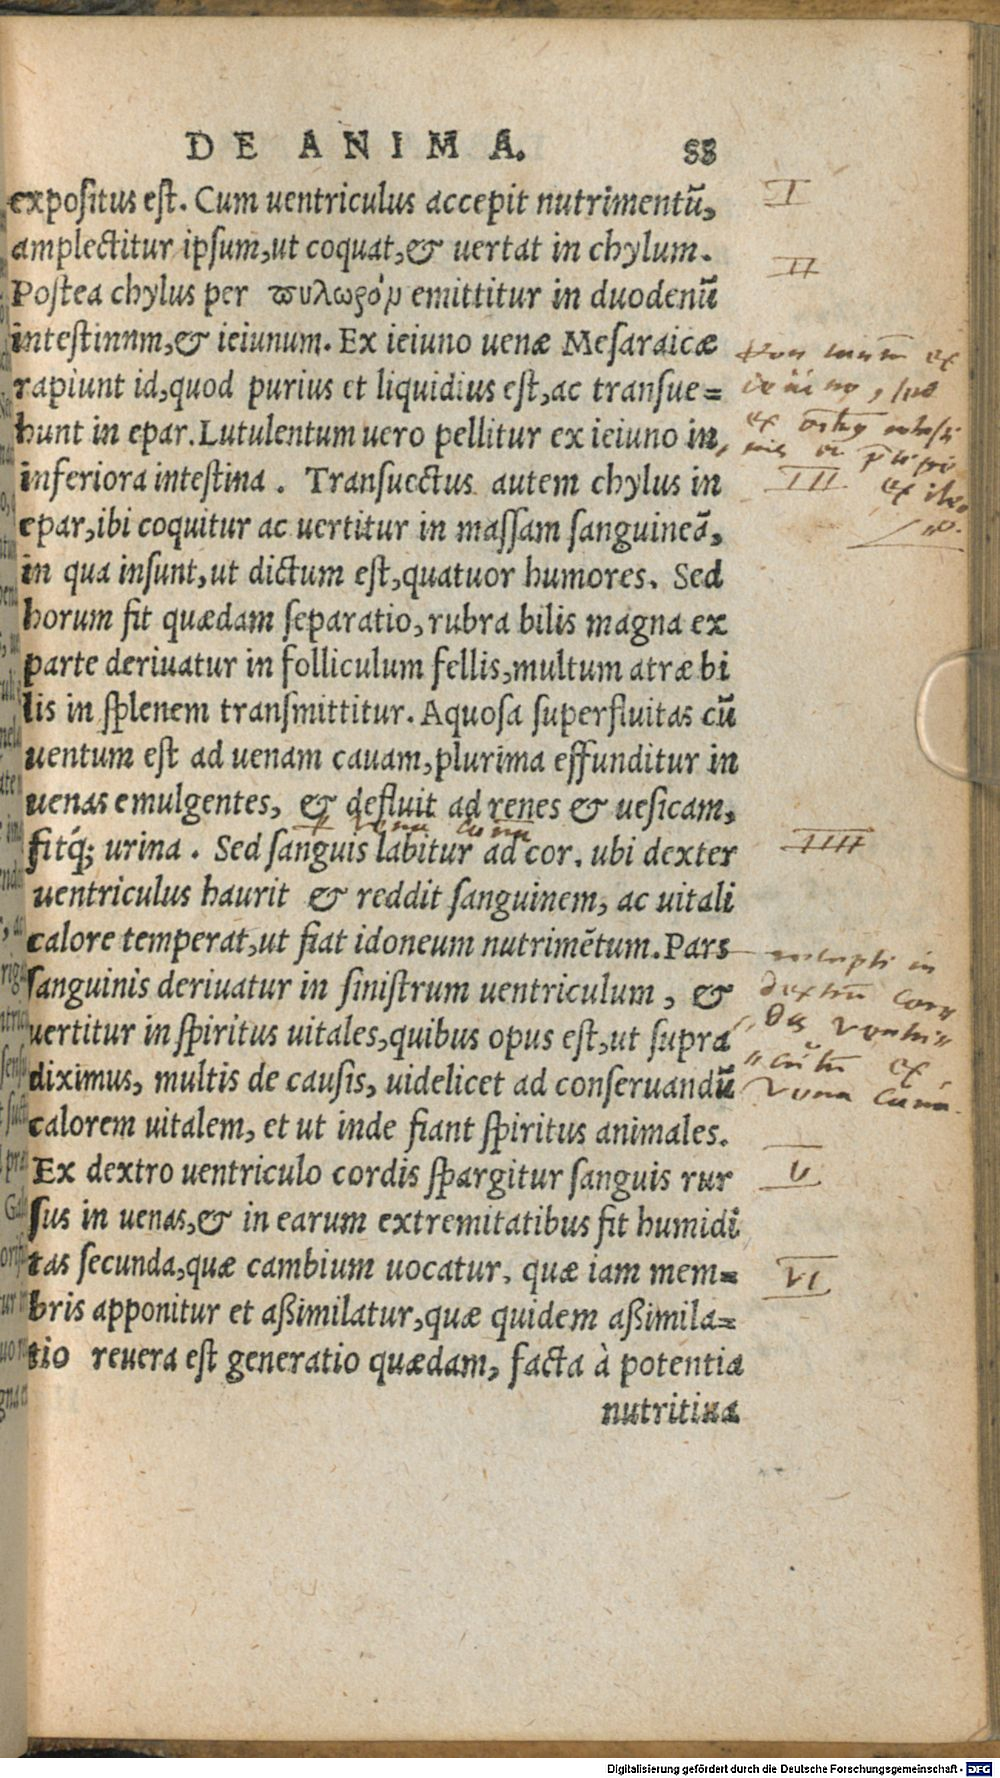 DE ANIMA. 88
expositus est. Cum uentriculus accepit nutrimentũ,
amplectitur ipsum,ut coquat,& uertat in chylum.
Postea chylus per πυλωρόν emittitur in duodenũ
intestinnm,& ieiunum. Ex ieiuno uenæ Mesaraicæ
rapiunt id,quod purius et liquidius est,ac transue=
hunt in epar. Lutulentum uero pellitur ex ieiuno in
inferiora intestina. Transuectus autem chylus in
epar,ibi coquitur ac uertitur in massam sanguineã,
in qua insunt,ut dictum est,quatuor humores. Sed
horum fit quædam separatio,rubra bilis magna ex
parte deriuatur in folliculum fellis,multum atræ bi
lis in splenem transmittitur. Aquosa superfluitas cũ
uentum est ad uenam cauam,plurima effunditur in
uenas emulgentes, & defluit ad renes & uesicam,
uena caua
fitq́; urina. Sed sanguis labitur ad cor, ubi dexter
uentriculus haurit & reddit sanguinem, ac uitali
calore temperat,ut fiat idoneum nutrimẽtum. Pars
sanguinis deriuatur in sinistrum uentriculum, &
uertitur in spiritus uitales,quibus opus est,ut supra
diximus, multis de causis, uidelicet ad conseruandũ
calorem uitalem, et ut inde fiant spiritus animales.
Ex dextro uentriculo cordis spargitur sanguis rur
sus in uenas,& in earum extremitatibus fit humidi
tas secunda,quæ cambium uocatur, quæ iam mem=
bris apponitur et aßimilatur,quæ quidem aßimila=
tio reuera est generatio quædam, facta à potentia
nutritiua
I
II
ex
ieiuno,
ex
III
ex
IIII
in
dextrũ cor
dis
ex
vena caua.
V
VI
Digitalisierung gefördert durch die Deutsche Forschungsgemeinschaft - DFG